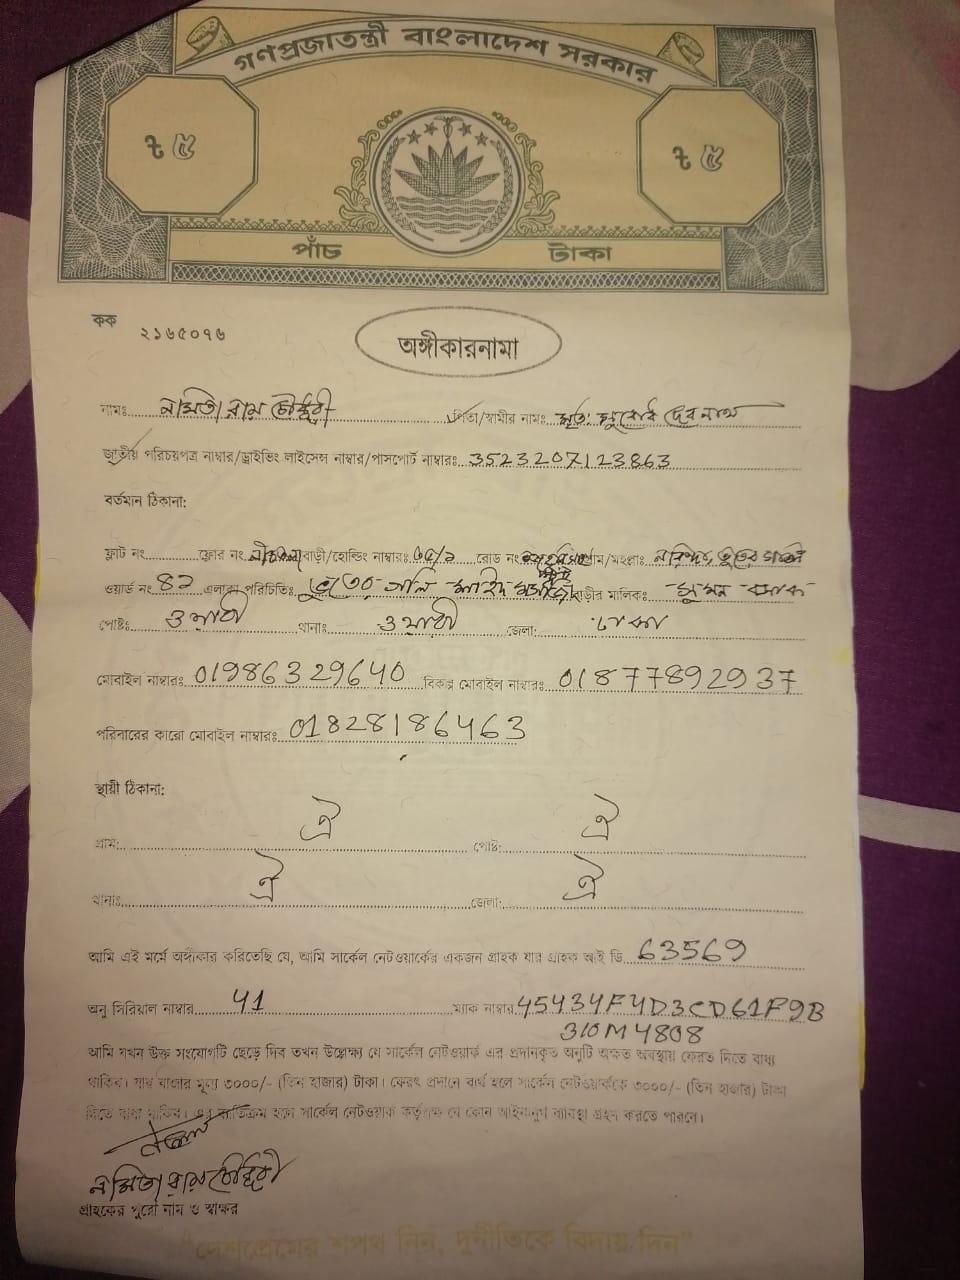 গণপ্রজাতন্ত্রী বাংলাদেশ সরকার
৳ ৫ ৳ ৫
পাঁচ টাকা
কক ২১৬৫০৭৬
অঙ্গীকারনামা
নামঃ নমিতা রায় চৌধুরী পিতা/স্বামীর নামঃ মৃত: সুবোধ দেব নাথ
জাতীয় পরিচয়পত্র নাম্বার/ড্রাইভিং লাইসেন্স নাম্বার/পাসপোর্ট নাম্বারঃ 3523207123863
বর্তমান ঠিকানা:
ফ্লাট নং ফ্লোর নং নীচতলা বাড়ী/হোল্ডিং নাম্বারঃ রোড নং গ্রাম/মহল্লাঃ নারিন্দা, ভূতের গলি
ওয়ার্ড নং 41 এলাকা পরিচিতিঃ ভূতের গলি বাড়ীর মালিকঃ সুমন বসাক
পোষ্টঃ ওয়ারী থানাঃ ওয়ারী জেলা: ঢাকা
মোবাইল নাম্বারঃ 01986329640 বিকল্প মোবাইল নাম্বারঃ 01877892937
পরিবারের কারো মোবাইল নাম্বারঃ 01828186463
স্থায়ী ঠিকানা:
গ্রাম: ঐ পোষ্ট: ঐ
থানাঃ ঐ জেলা: ঐ
আমি এই মর্মে অঙ্গীকার করিতেছি যে, আমি সার্কেল নেটওয়ার্কের একজন গ্রাহক যার গ্রাহক আই ডি 63569
অনু সিরিয়াল নাম্বার 41 ম্যাক নাম্বার 45434F4D3CD61F9B
310M4808
আমি যখন উক্ত সংযোগটি ছেড়ে দিব তখন উল্লেখ্য যে সার্কেল নেটওয়ার্ক এর প্রদানকৃত অনুটি অক্ষত অবস্থায় ফেরত দিতে বাধ্য
থাকিব। যার বাজার মূল্য ৩০০০/- (তিন হাজার) টাকা। ফেরৎ প্রদানে ব্যর্থ হলে সার্কেল নেটওয়ার্ককে ৩০০০/- (তিন হাজার) টাকা
দিতে বাধ্য থাকিব। এর ব্যতিক্রম হলে সার্কেল নেটওয়ার্ক কর্তৃপক্ষ যে কোন আইনানুগ ব্যবস্থা গ্রহন করতে পারবে।
নমিতা রায় চৌধুরী
গ্রাহকের পুরো নাম ও স্বাক্ষর
"দেশপ্রেমের শপথ নিন, দুর্নীতিকে বিদায় দিন"